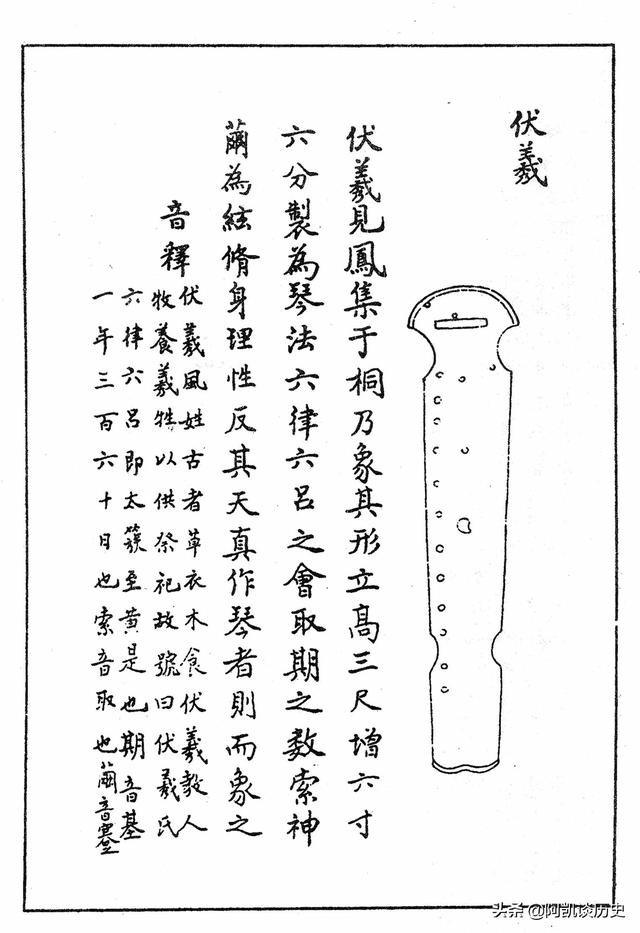 伏羲
伏羲見鳳集于桐乃象其形立高三尺增六寸
六分製為琴法六律六呂之會取期之數索神
繭為絃脩身理性反其天真作琴者則而象之
音釋
伏羲風姓古者草衣木食伏羲教人
牧養羲牲以供祭祀故號曰伏羲氏
六律六呂即太簇至黃是也期音基
一年三百六十日也索音取也繭音蹇
头条 @阿凯谈历史